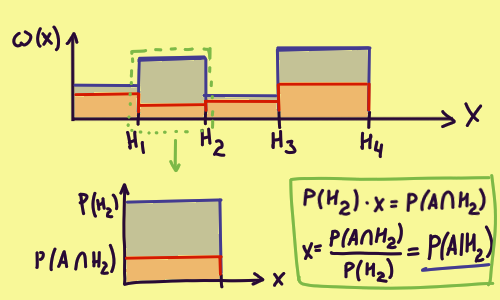 ω(x)
X
H₁ H₂ H₃ H₄
P(H₂)
P(A∩H₂)
x
P(H₂) · x = P(A∩H₂)
x = P(A∩H₂) / P(H₂) = P(A|H₂)